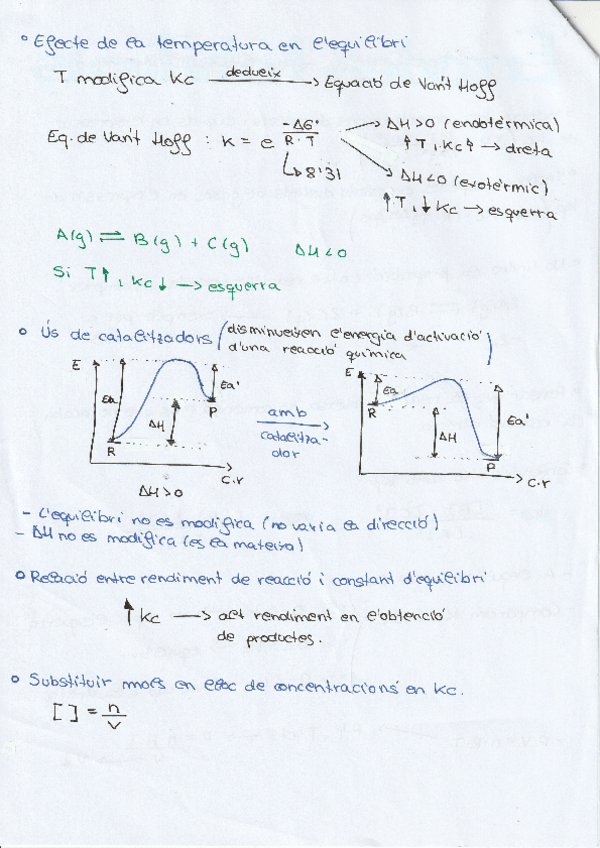 ° Efecte de la temperatura en l'equilibri
T modifica Kc dedueix → Equació de Van't Hoff
Eq. de Van't Hoff : K = e -ΔG°/R·T
↳ 8'31
ΔH>0 (endotèrmica)
↑T, Kc↑ → dreta
ΔH<0 (exotèrmic)
↑T, ↓Kc → esquerra
A(g) ⇌ B(g) + C(g) ΔH<0
Si T↑, Kc↓ → esquerra
° Ús de catalitzadors (disminueixen l'energia d'activació
d'una reacció química)
E
Ea
R
ΔH
Ea'
P
C.r
ΔH>0
amb
catalitza-
dor
E
Ea
R
ΔH
Ea'
P
C.r
- L'equilibri no es modifica (no varia la direcció)
- ΔH no es modifica (es la mateixa)
° Relació entre rendiment de reacció i constant d'equilibri
↑ Kc → alt rendiment en l'obtenció
de productes.
° Substituir mols en lloc de concentracions en Kc.
[ ] = n/V